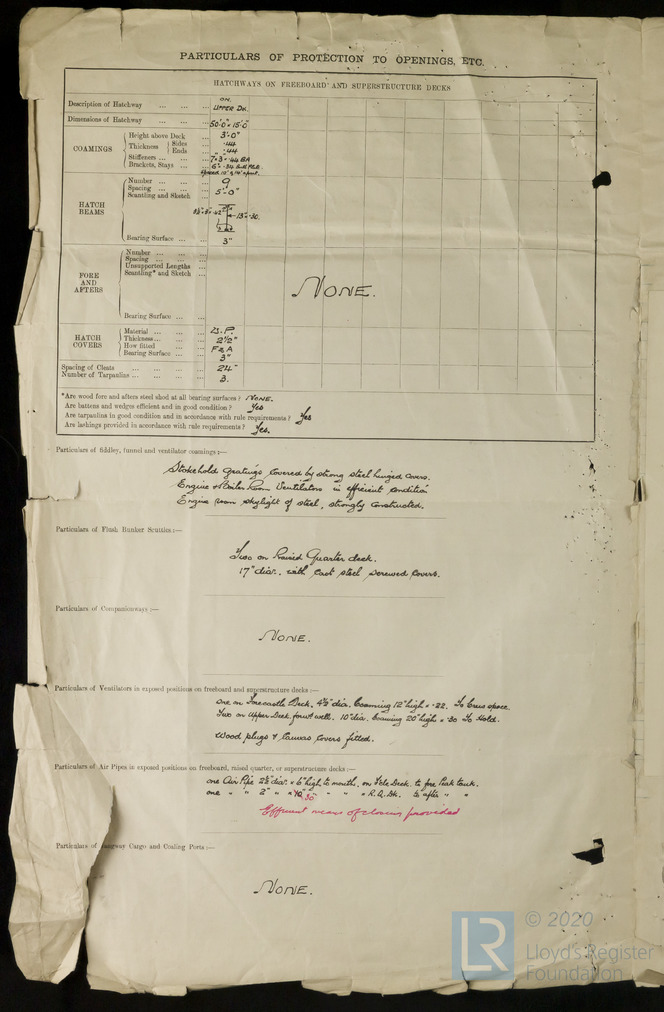 PARTICULARS OF PROTECTION TO OPENINGS, ETC.
HATCHWAYS ON FREEBOARD AND SUPERSTRUCTURE DECKS
Description of Hatchway ... ... ... ON UPPER DK.
Dimensions of Hatchway ... ... ... 50'0" × 15'0"
COAMINGS
Height above Deck ... 3'-0"
Thickness Sides ... .44
Ends ... .44
Stiffeners ... ... 7" × 3" × .44 BA
Brackets, Stays ... ...
HATCH BEAMS
Number ... ... ... 9
Spacing ... ... ... 5'-0"
Scantling and Sketch
Bearing Surface ... ... 3"
FORE AND AFTERS
Number ... ... ...
Spacing ... ... ...
Unsupported Lengths ...
Scantling* and Sketch
NONE.
Bearing Surface ... ...
HATCH COVERS
Material ... ... ... W.P.
Thickness ... ... ... 2½"
How fitted ... ... F & A
Bearing Surface ... ... 3"
Spacing of Cleats ... ... ... ... 24"
Number of Tarpaulins ... ... ... ... 3.
*Are wood fore and afters steel shod at all bearing surfaces? NONE.
Are battens and wedges efficient and in good condition? Yes
Are tarpaulins in good condition and in accordance with rule requirements? Yes
Are lashings provided in accordance with rule requirements? Yes.
Particulars of fiddley, funnel and ventilator coamings :—
Stokehold gratings covered by strong steel hinged covers.
Engine & Boiler Room Ventilators in efficient condition
Engine room skylight of steel, strongly constructed.
Particulars of Flush Bunker Scuttles :—
Two on Raised Quarter deck.
17" dia., with cast steel screwed covers.
Particulars of Companionways :—
NONE.
Particulars of Ventilators in exposed positions on freeboard and superstructure decks :—
One on Forecastle Deck, 4½" dia. Coaming 12" high × .22. To Crew space.
Two on Upper Deck forwd well. 10" dia. Coaming 20" high × .30 To Hold.
Wood plugs & Canvas Covers fitted.
Particulars of Air Pipes in exposed positions on freeboard, raised quarter, or superstructure decks :—
one Air Pipe 2½" dia. × 6" high to mouth, on Fcle Deck. to fore Peak tank.
one " " 2" " × " " " " R.Q. Dk. to after " "
Efficient means of closing provided
Particulars of Gangway Cargo and Coaling Ports :—
NONE.
LR
© 2020
Lloyd's Register
Foundation